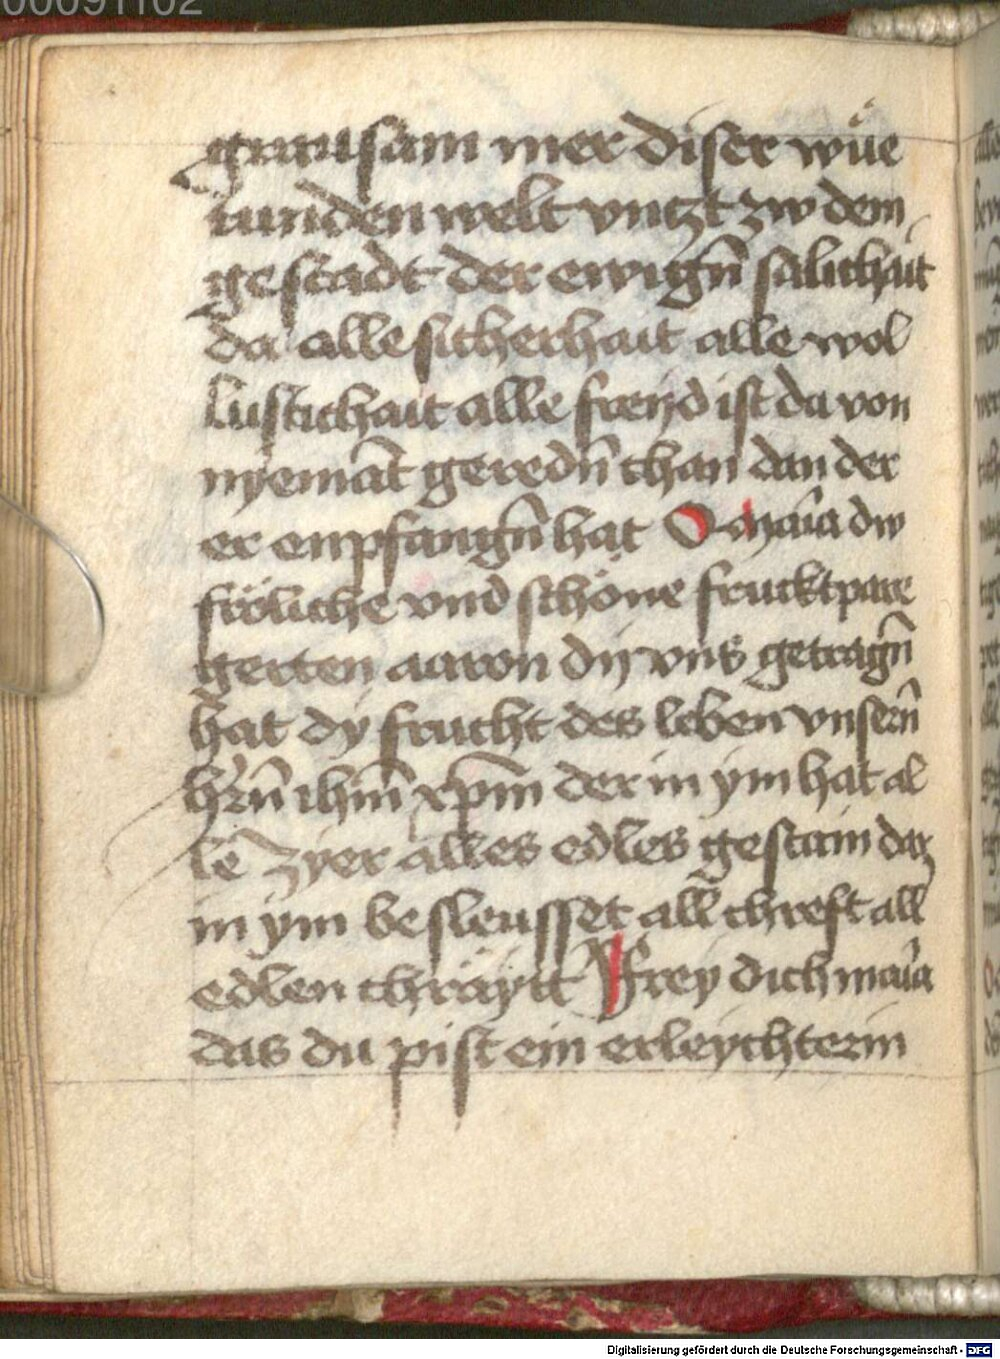 00091102
grausam mer diser wüe
tunden welt vntzt zw dem
gestadt der ewigñ salichait
da alle sicherhait alle wol
lustichait alle freyd ist da von
nyemāt geredñ chan dan der
er enpfangñ hat O maria dw
fröliche vnd schöne frucktpare
gerten aaron dy vns getragñ
hat dy frucht des leben vnserñ
hrñ ihm̄ xp̄m der in ym hat al
le zyer alles edles gestain daz
in ym besleusset all chreft all
edlen chräytt Frey dich maria
das du pist ein erleychterin
Digitalisierung gefördert durch die Deutsche Forschungsgemeinschaft - DFG